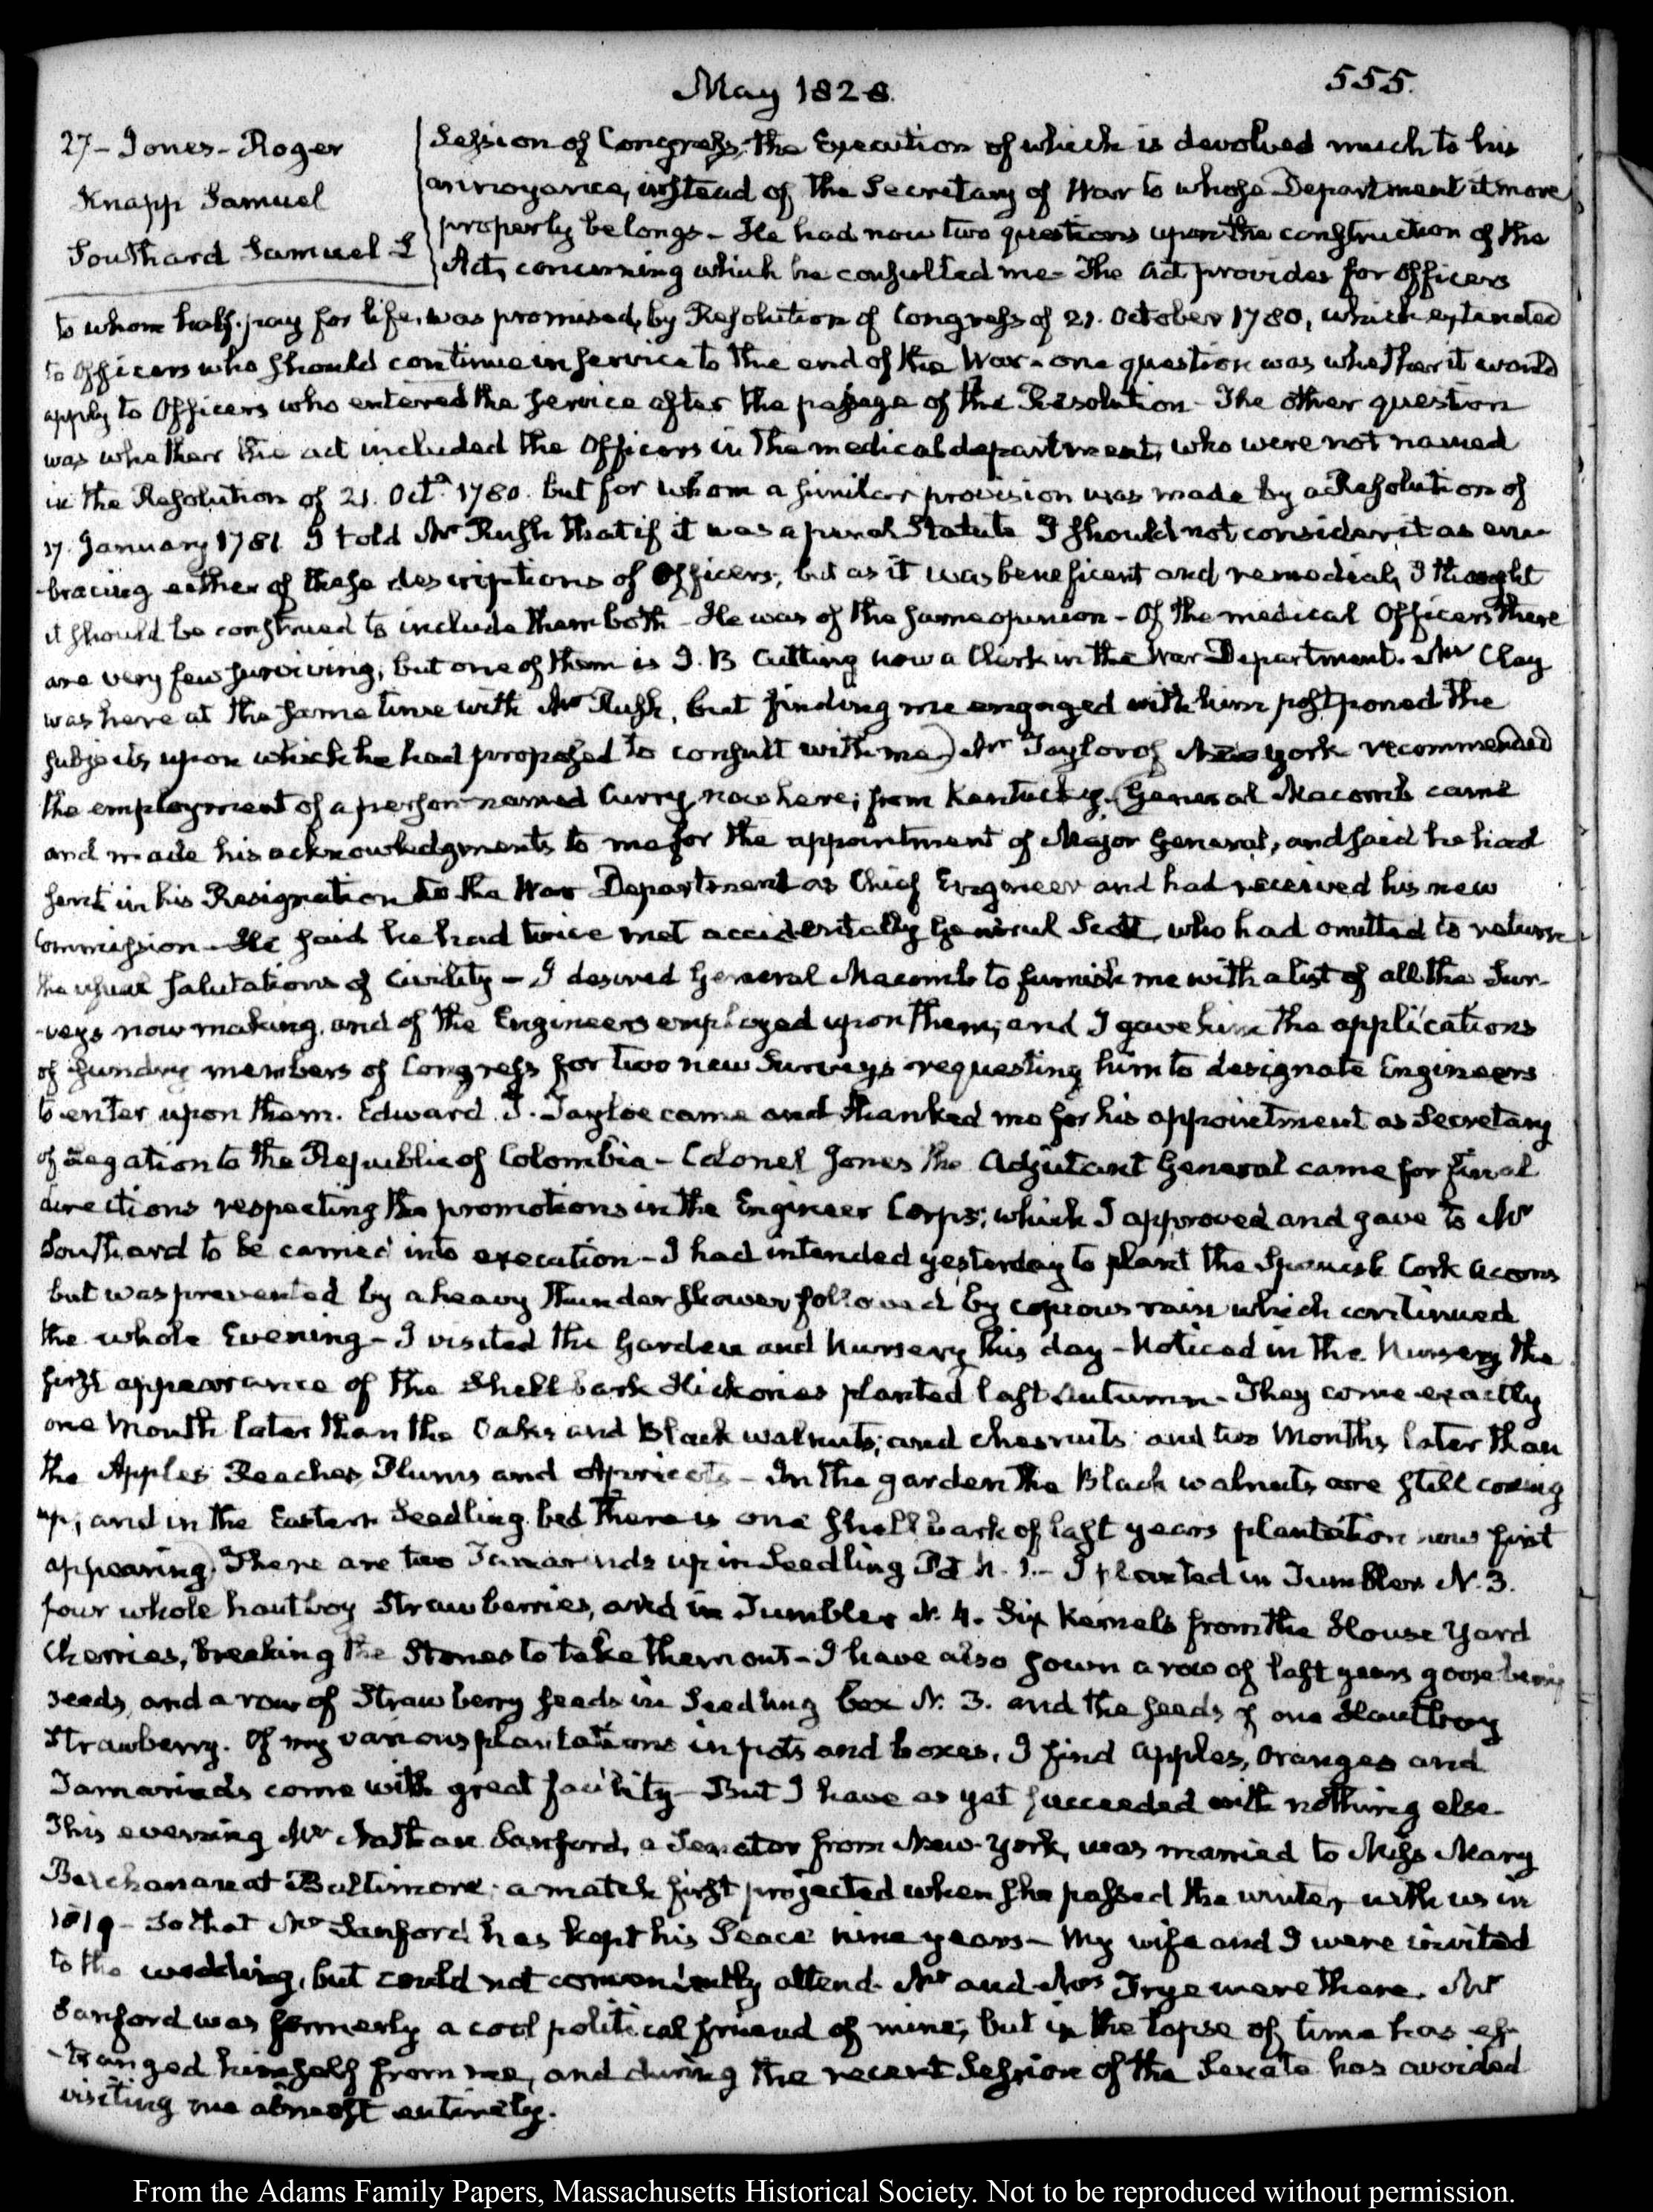 May 1828.
555.
27 - Jones - Roger
Knapp Samuel
Southard Samuel L
Session of Congress, the Execution of which is devolved much to his
annoyance, instead of the Secretary of War to whose Department it more
properly belongs - He had now two questions upon the construction of the
Act, concerning which he consulted me - The Act provides for Officers
to whom half-pay for life, was promised, by Resolution of Congress of 21. October 1780, which extended
to Officers who should continue in service to the end of the War - one question was whether it would
apply to Officers who entered the service after the passage of the Resolution - The other question
was whether the act included the Officers in the medical department, who were not named
in the Resolution of 21. Oct.r 1780. but for whom a similar provision was made by a Resolution of
17. January 1781. I told Mr Rush that if it was a penal Statute I should not consider it as em-
-bracing either of these descriptions of Officers; but as it was beneficent and remedial, I thought
it should be construed to include them both - He was of the same opinion - Of the medical Officers there
are very few surviving; but one of them is J. B Cutting now a Clerk in the War Department. Mr Clay
was here at the same time with Mr Rush, but finding me engaged with him postponed the
subjects upon which he had proposed to consult with me) Mr Taylor of New York recommended
the employment of a person named Curry, now here; from Kentucky. (General Macomb came
and made his acknowledgments to me for the appointment of Major General, and said he had
sent in his Resignation to the War Department as Chief Engineer and had received his new
Commission - He said he had twice met accidentally General Scott, who had omitted to return
the usual salutations of Civility - I desired General Macomb to furnish me with a list of all the Sur-
-veys now making, and of the Engineers employed upon them; and I gave him the applications
of sundry members of Congress for two new Surveys requesting him to designate Engineers
to enter upon them. Edward J. Tayloe came and thanked me for his appointment as Secretary
of Legation to the Republic of Colombia - Colonel Jones the Adjutant General came for final
directions respecting the promotions in the Engineer Corps; which I approved and gave to Mr
Southard to be carried into execution - I had intended yesterday to plant the Spanish Cork acorns
but was prevented by a heavy Thunder shower followed by copious rain which continued
the whole Evening - I visited the Garden and Nursery this day - Noticed in the Nursery the
first appearance of the Shellbark Hickories planted last Autumn - They come exactly
one Month later than the Oaks and Black walnuts, and chesnuts and two Months later than
the Apples Peaches Plums and Apricots - In the garden the Black walnuts are still coming
up; and in the Eastern Seedling bed there is one shellbark of last years plantation now first
appearing). There are two Tamarinds up in Seedling Pot N. 1. - I planted in Tumbler N. 3.
four whole hautboy Strawberries, and in Tumbler N. 4. Six Kernels from the House Yard
Cherries, breaking the Stones to take them out - I have also sown a row of last years gooseberry
seeds, and a row of Strawberry seeds in Seedling box N. 3. and the seeds of one Hautboy
Strawberry. Of my various plantations in pots and boxes, I find apples, oranges and
Tamarinds come with great facility - But I have as yet succeeded with nothing else -
This evening Mr Nathan Sanford, a Senator from New-York, was married to Miss Mary
Buchanan at Baltimore; a match first projected when she passed the winter with us in
1819 - So that Mr Sanford has kept his Peace nine years - My wife and I were invited
to the wedding, but could not conveniently attend. Mr and Mrs Frye were there. Mr
Sanford was formerly a cool political friend of mine; but in the lapse of time has es-
-tranged himself from me, and during the recent Session of the Senate has avoided
visiting me almost entirely.
From the Adams Family Papers, Massachusetts Historical Society. Not to be reproduced without permission.